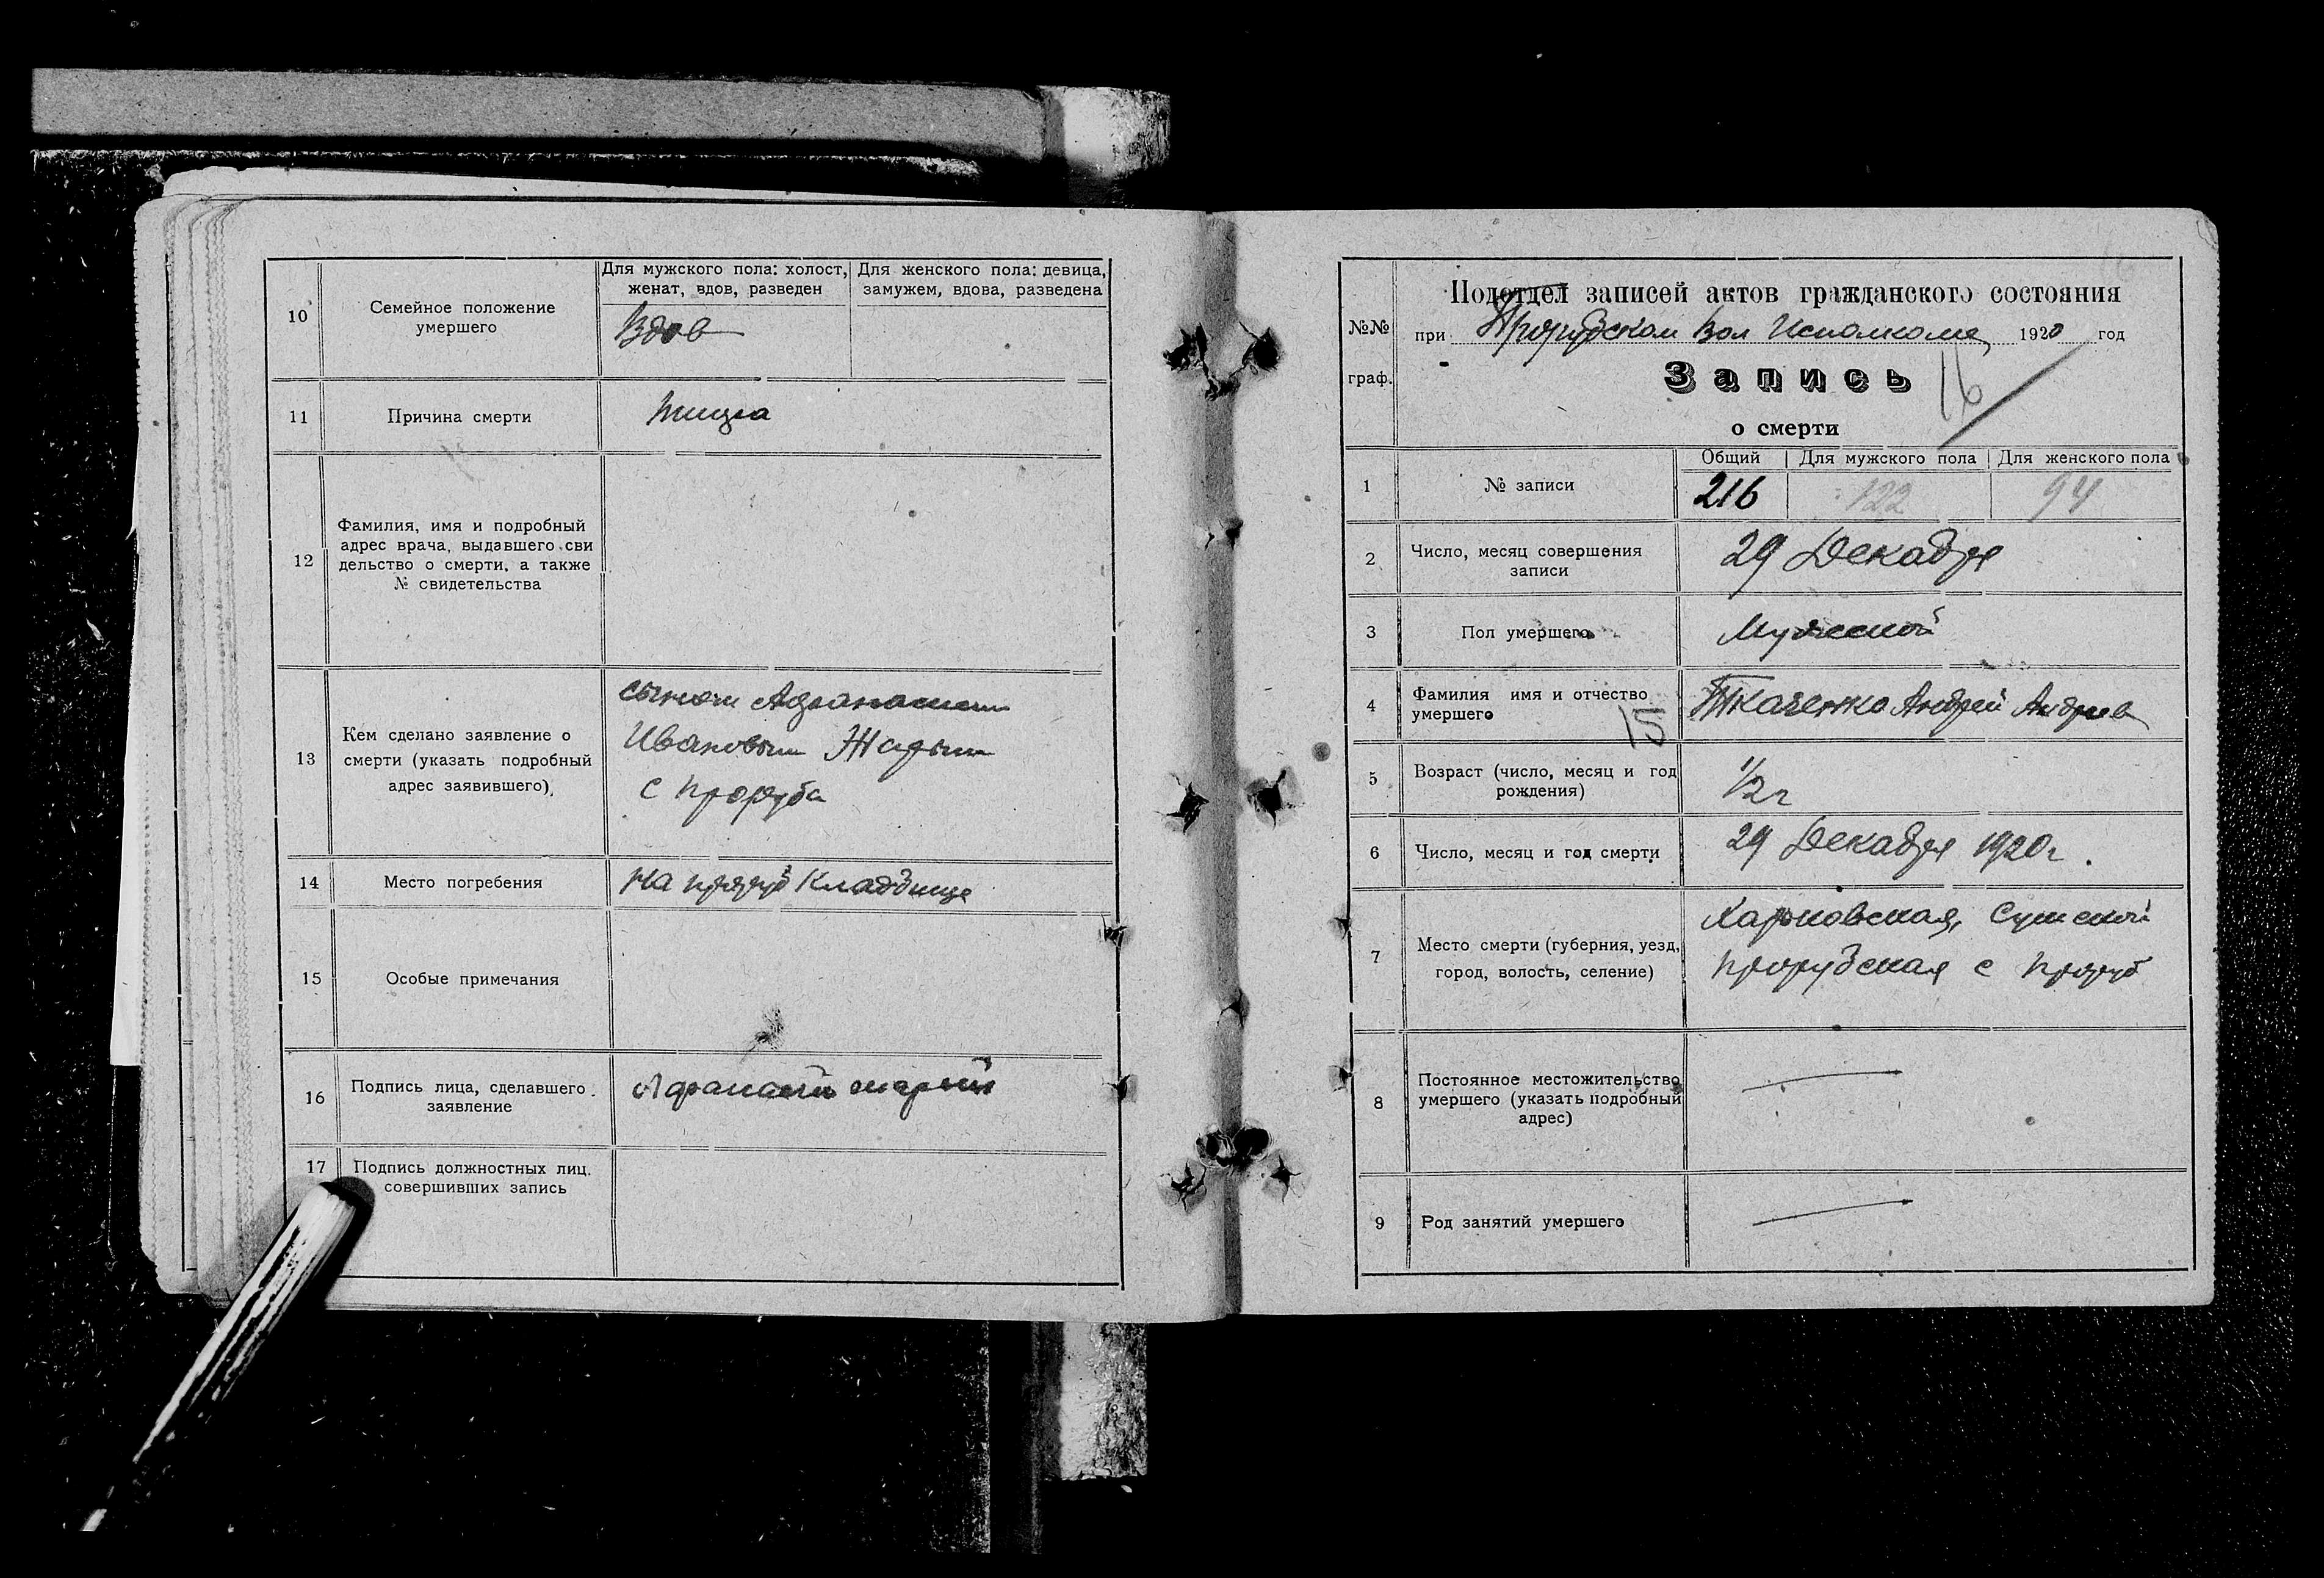 10
Семейное положение
умершего
Для мужского пола: холост,
женат, вдов, разведен
Для женского пола: девица,
замужем, вдова, разведена
Вдов
11
Причина смерти
12
Фамилия, имя и подробный
адрес врача, выдавшего сви
дельство о смерти, а также
№ свидетельства
13
Кем сделано заявление о
смерти (указать подробный
адрес заявившего)
сыном Афанасием
Ивановым Жарым
с Проруба
14
Место погребения
На Проруб Кладбище
15
Особые примечания
16
Подпись лица, сделавшего
заявление
Афанасий
17
Подпись должностных лиц.
совершивших запись
№№
граф.
Подотдел записей актов гражданского состояния
при Прорубском Вол Исполкоме 1920 год
Запись
16
о смерти
1
№ записи
Общий
Для мужского пола
Для женского пола
216
122
94
2
Число, месяц совершения
записи
29 Декабря
3
Пол умершего
Мужеской
4
Фамилия имя и отчество
умершего
15
Ткаченко Андрей Андреев
5
Возраст (число, месяц и год
рождения)
1/2 г
6
Число, месяц и год смерти
29 Декабря 1920г.
7
Место смерти (губерния, уезд,
город, волость, селение)
Харковская, Сумской
Прорубская с Проруб
8
Постоянное местожительство
умершего (указать подробный
адрес)
9
Род занятий умершего